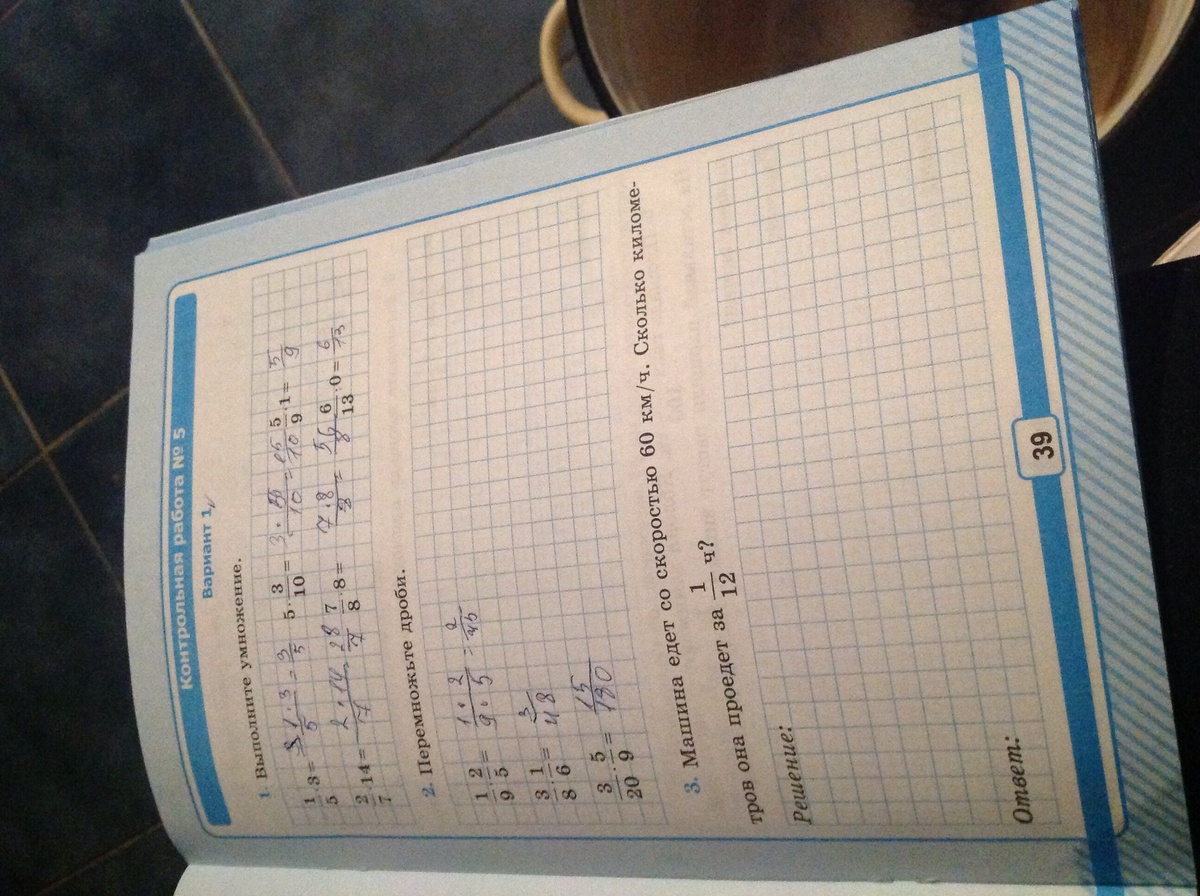 Контрольная работа № 5
Вариант 1
1. Выполните умножение.
1/5 · 3 = 1·3/5 = 3/5 5 · 3/10 = /10 = /10 5/9 · 1 = 5/9
2/7 · 14 = 2·14/7 28/7 7/8 · 8 = 7·8/8 = 56/8 6/13 · 0 = 6/13
2. Перемножьте дроби.
1/9 · 2/5 = 1·2/9·5 = 2/45
3/8 · 1/6 = 3/48
3/20 · 5/9 = 15/180
3. Машина едет со скоростью 60 км/ч. Сколько киломе-
тров она проедет за 1/12 ч?
Решение:
Ответ:
39